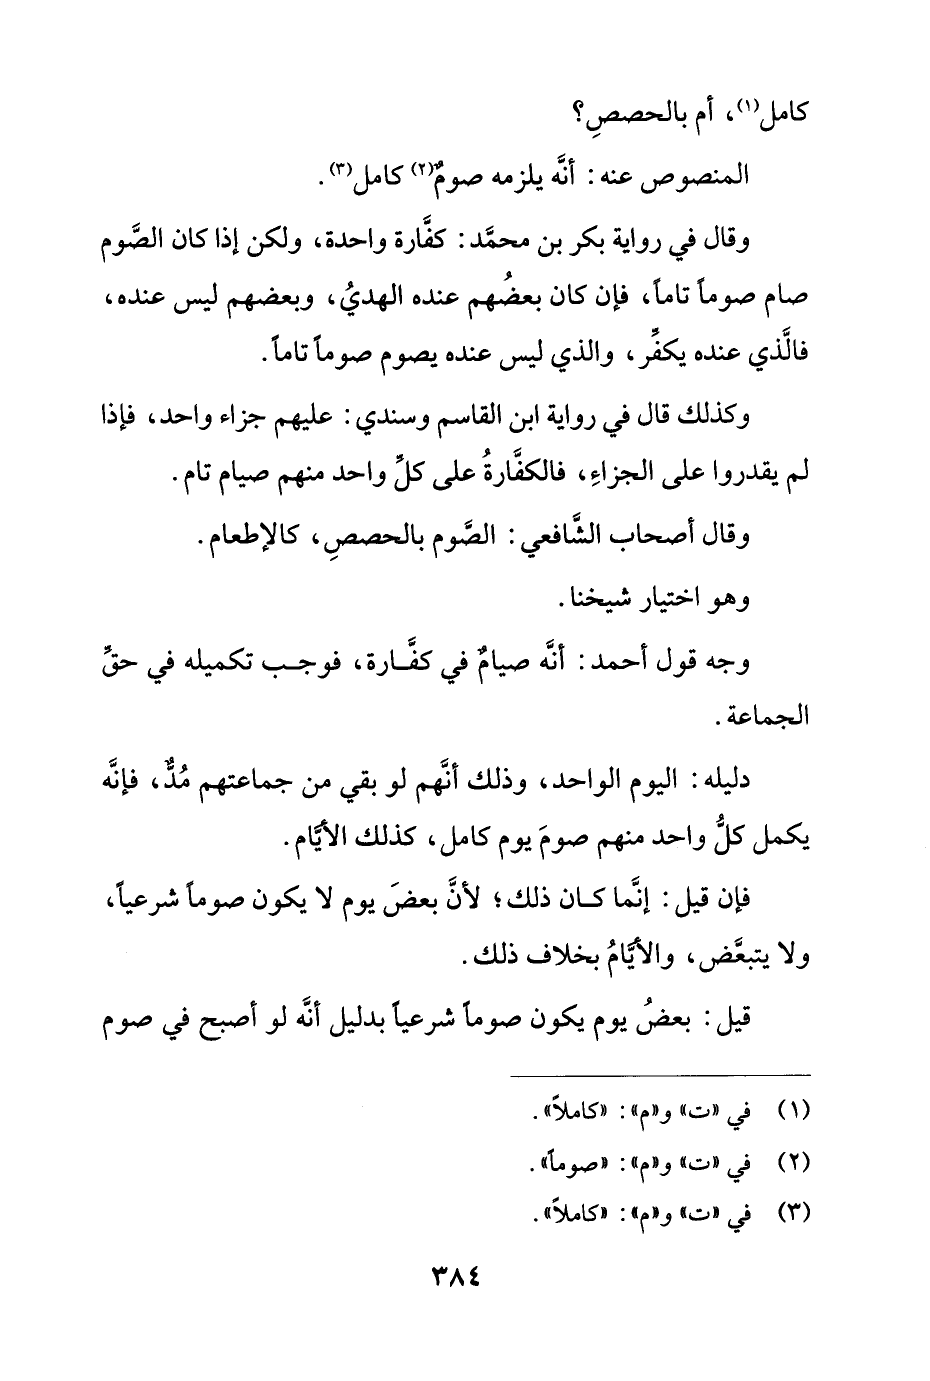 كامل(١)، أم بالحصصِ؟
المنصوص عنه: أنَّه يلزمه صومٌ(٢) كامل(٣).
وقال في رواية بكر بن محمَّد: كفَّارة واحدة، ولكن إذا كان الصَّوم
صام صوماً تاماً، فإن كان بعضُهم عنده الهديُ، وبعضهم ليس عنده،
فالَّذي عنده يكفِّر، والذي ليس عنده يصوم صوماً تاماً.
وكذلك قال في رواية ابن القاسم وسندي: عليهم جزاء واحد، فإذا
لم يقدروا على الجزاءِ، فالكفَّارةُ على كلِّ واحد منهم صيام تام.
وقال أصحاب الشَّافعي: الصَّوم بالحصصِ، كالإطعام.
وهو اختيار شيخنا.
وجه قول أحمد: أنَّه صيامٌ في كفَّارة، فوجب تكميله في حقِّ
الجماعة.
دليله: اليوم الواحد، وذلك أنَّهم لو بقي من جماعتهم مُدٌّ، فإنَّه
يكمل كلُّ واحد منهم صومَ يوم كامل، كذلك الأيَّام.
فإن قيل: إنَّما كان ذلك؛ لأنَّ بعضَ يوم لا يكون صوماً شرعياً،
ولا يتبعَّض، والأيَّامُ بخلاف ذلك.
قيل: بعضُ يوم يكون صوماً شرعياً بدليل أنَّه لو أصبح في صوم
(١) في «ت» و«م»: «كاملاً».
(٢) في «ت» و«م»: «صوماً».
(٣) في «ت» و«م»: «كاملاً».
٣٨٤